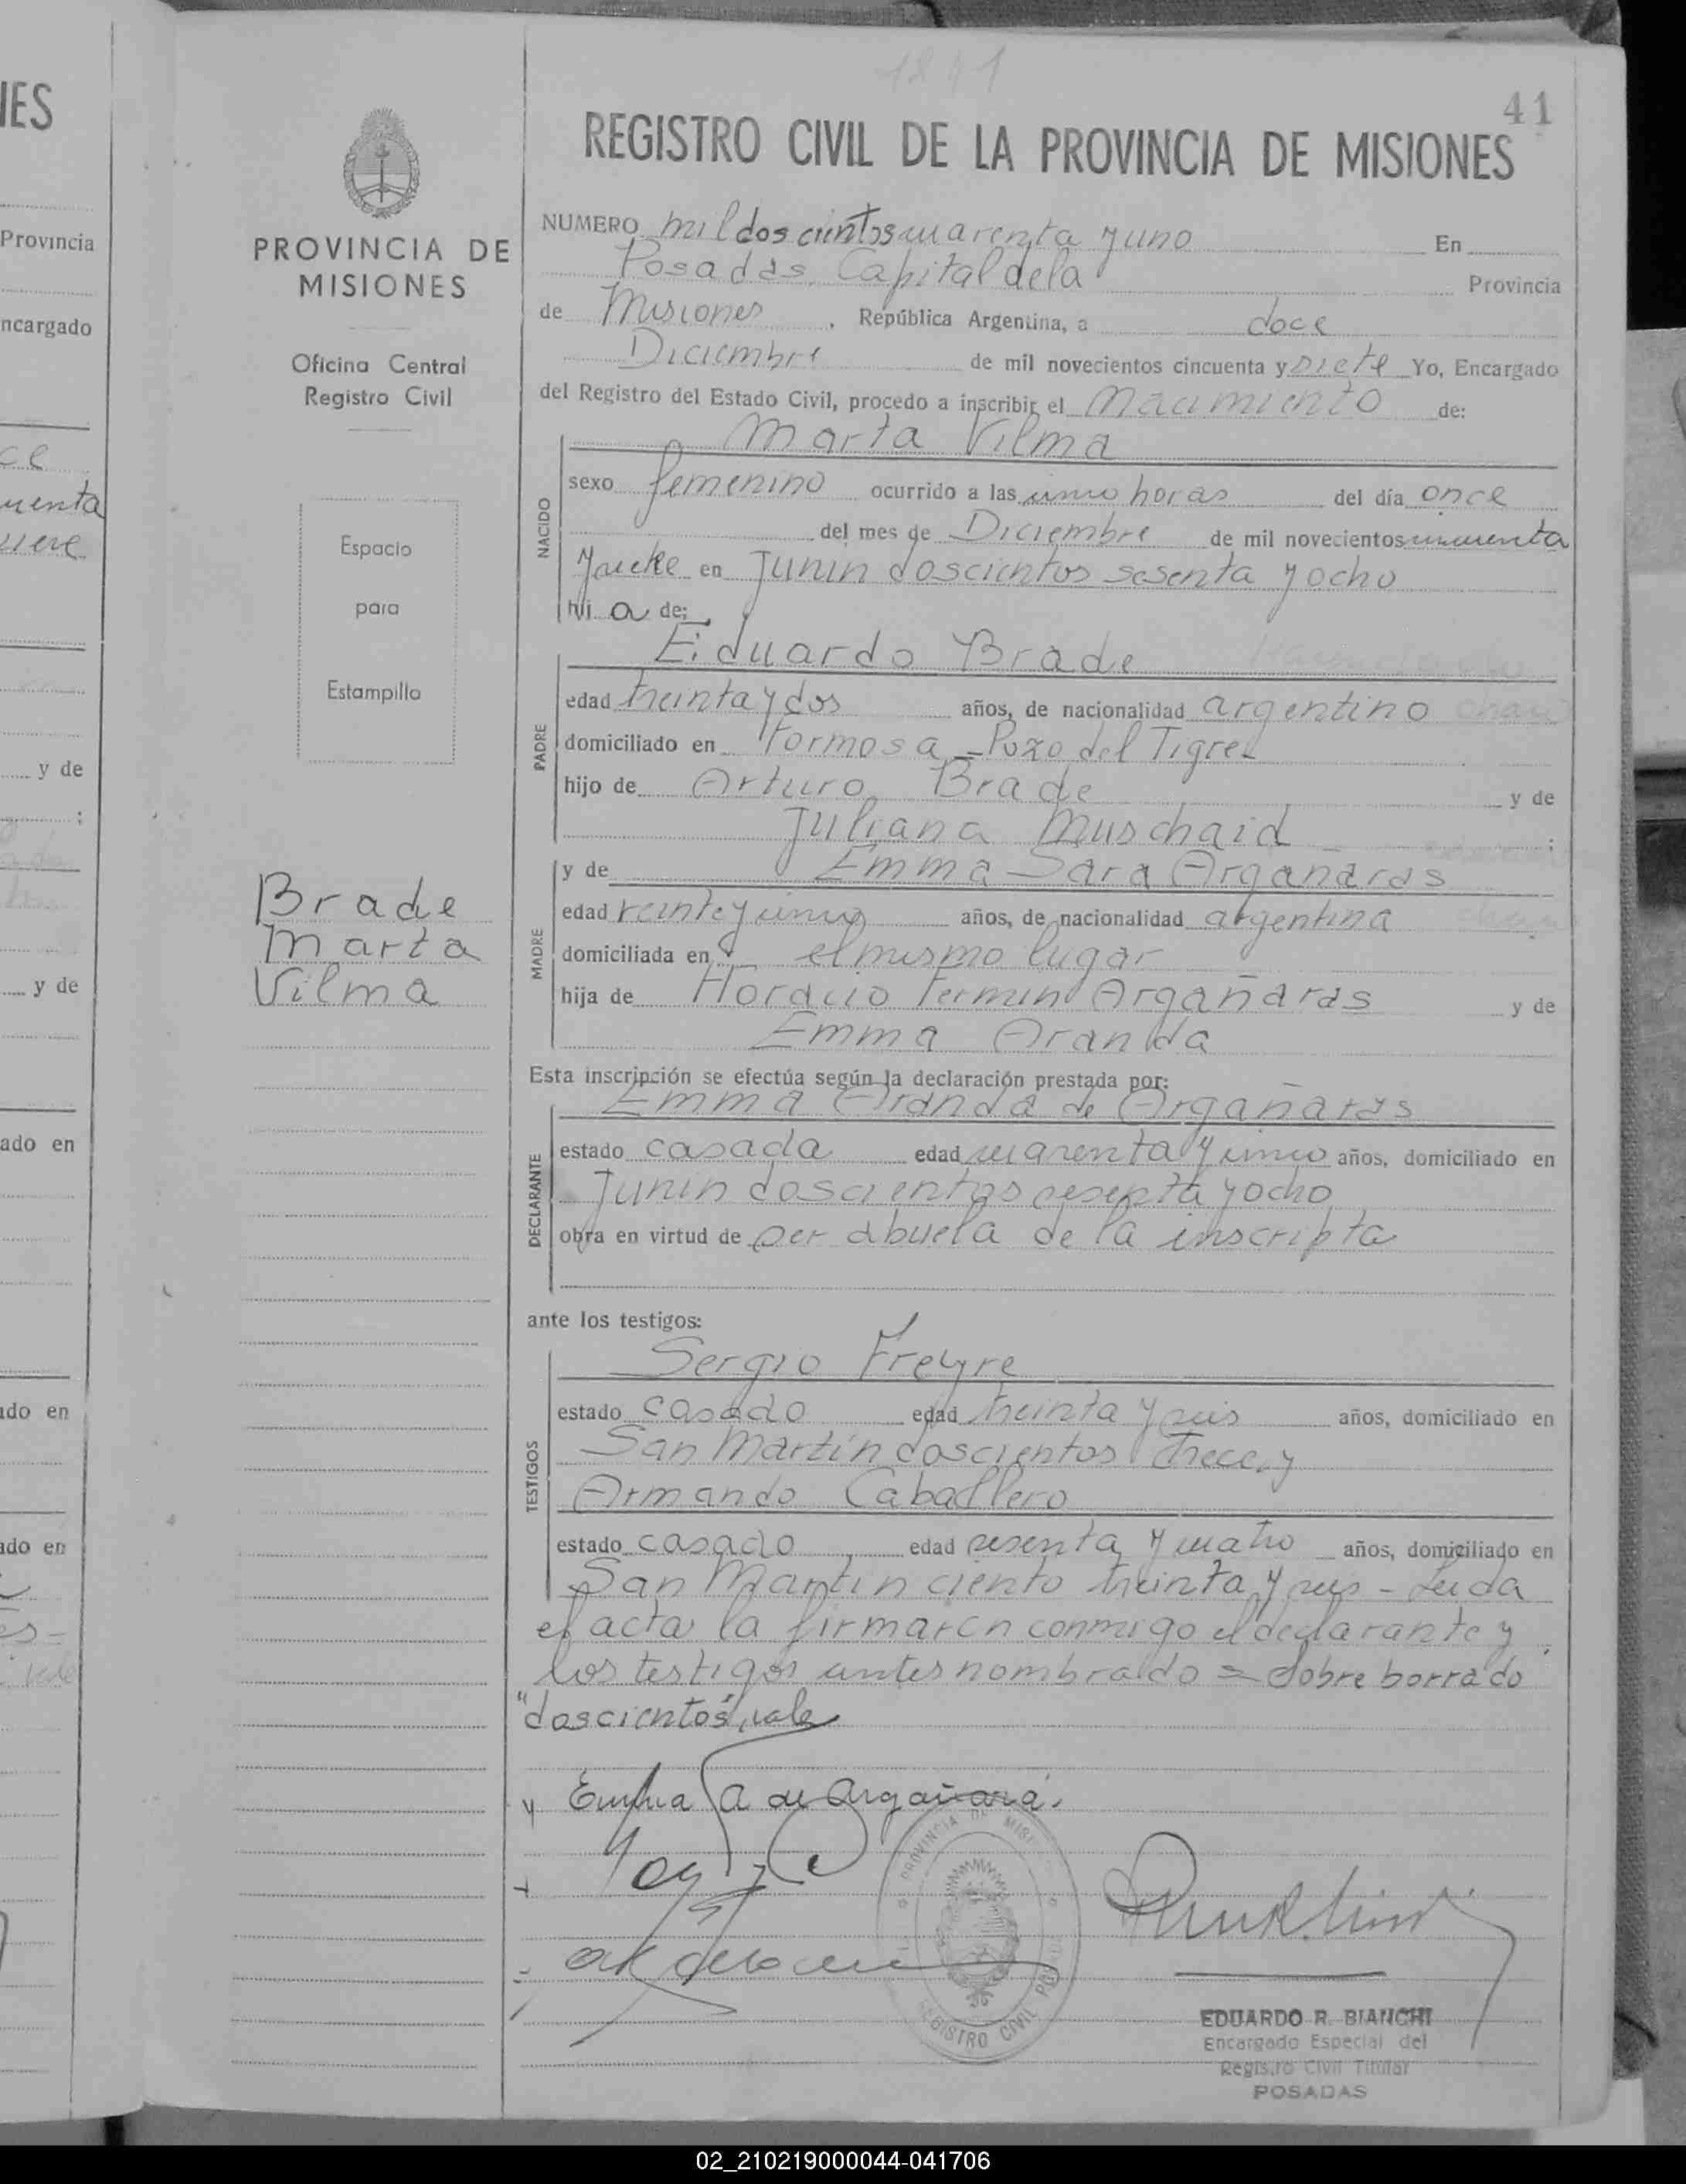 1241
41
REGISTRO CIVIL DE LA PROVINCIA DE MISIONES
PROVINCIA DE
MISIONES
Oficina Central
Registro Civil
Espacio
para
Estampilla
Brade
Marta
Vilma
NUMERO mil doscientos cuarenta y uno En
Posadas, Capital de la Provincia
de Misiones, República Argentina, a doce
Diciembre de mil novecientos cincuenta y siete Yo, Encargado
del Registro del Estado Civil, procedo a inscribir el nacimiento de:
NACIDO
Marta Vilma
sexo femenino ocurrido a las cinco horas del día once
del mes de Diciembre de mil novecientos cincuenta
y siete en Junin doscientos sesenta y ocho
hij a de:
PADRE
Eduardo Brade
edad treinta y dos años, de nacionalidad argentino
domiciliado en Formosa - Pozo del Tigre
hijo de Arturo Brade y de
Juliana Muschaid ;
MADRE
y de Emma Sara Argañaras
edad veinte y cinco años, de nacionalidad argentina
domiciliada en el mismo lugar
hija de Horacio Fermin Argañaras y de
Emma Aranda
Esta inscripción se efectúa según la declaración prestada por:
DECLARANTE
Emma Aranda de Argañaras
estado casada edad cuarenta y cinco años, domiciliado en
Junin doscientos sesenta y ocho
obra en virtud de ser abuela de la inscripta
ante los testigos:
TESTIGOS
Sergio Freyre
estado casado edad treinta y seis años, domiciliado en
San Martín doscientos trece y
Armando Caballero
estado casado edad sesenta y cuatro años, domiciliado en
San Martin ciento treinta y seis - Leida
el acta la firmaron conmigo el declarante y
los testigos antes nombrado = Sobre borrado
"doscientos", vale
Emma A de Argañara
PROVINCIA DE MISIONES
REGISTRO CIVIL POSADAS
EDUARDO R. BIANCHI
Encargado Especial del
Registro Civil Titular
POSADAS
IES
Provincia
ncargado
ce
uenta
y de
;
y de
ado en
ado en
ado en
02_210219000044-041706